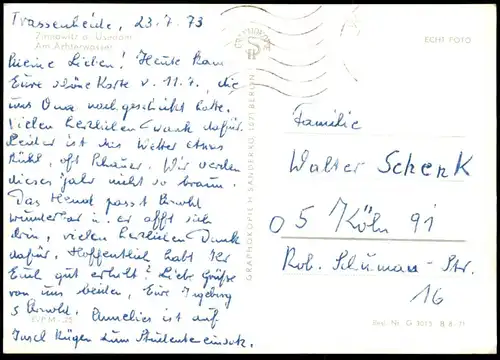 Trassenheide, 23.7.73
Zinnowitz a. Usedom
Am Achterwasser
Meine Lieben! Heute kam
Eure schöne Karte v. 11.7., die
uns Oma nachgeschickt hatte.
Vielen herzlichen Dank dafür.
Leider ist das Wetter etwas
kühl, oft Schauer. Wir werden
dieses Jahr nicht so braun.
Das Hemd passt
wunderbar u. er afft sich
drin, vielen herzlichen Dank
dafür. Hoffentlich habt Ihr
Euch gut erholt? Liebe Grüße
von uns beiden, Eure Ingeborg
Annelies ist auf
Insel Rügen zum Studenteneinsatz.
GRAPHOKOPIE H. SANDER KG, 1071 BERLIN
ECHT FOTO
Familie
Walter Schenk
05 Köln 91
Rob. Schuman-Str.
16
Best.-Nr. G 3013 B 8/71